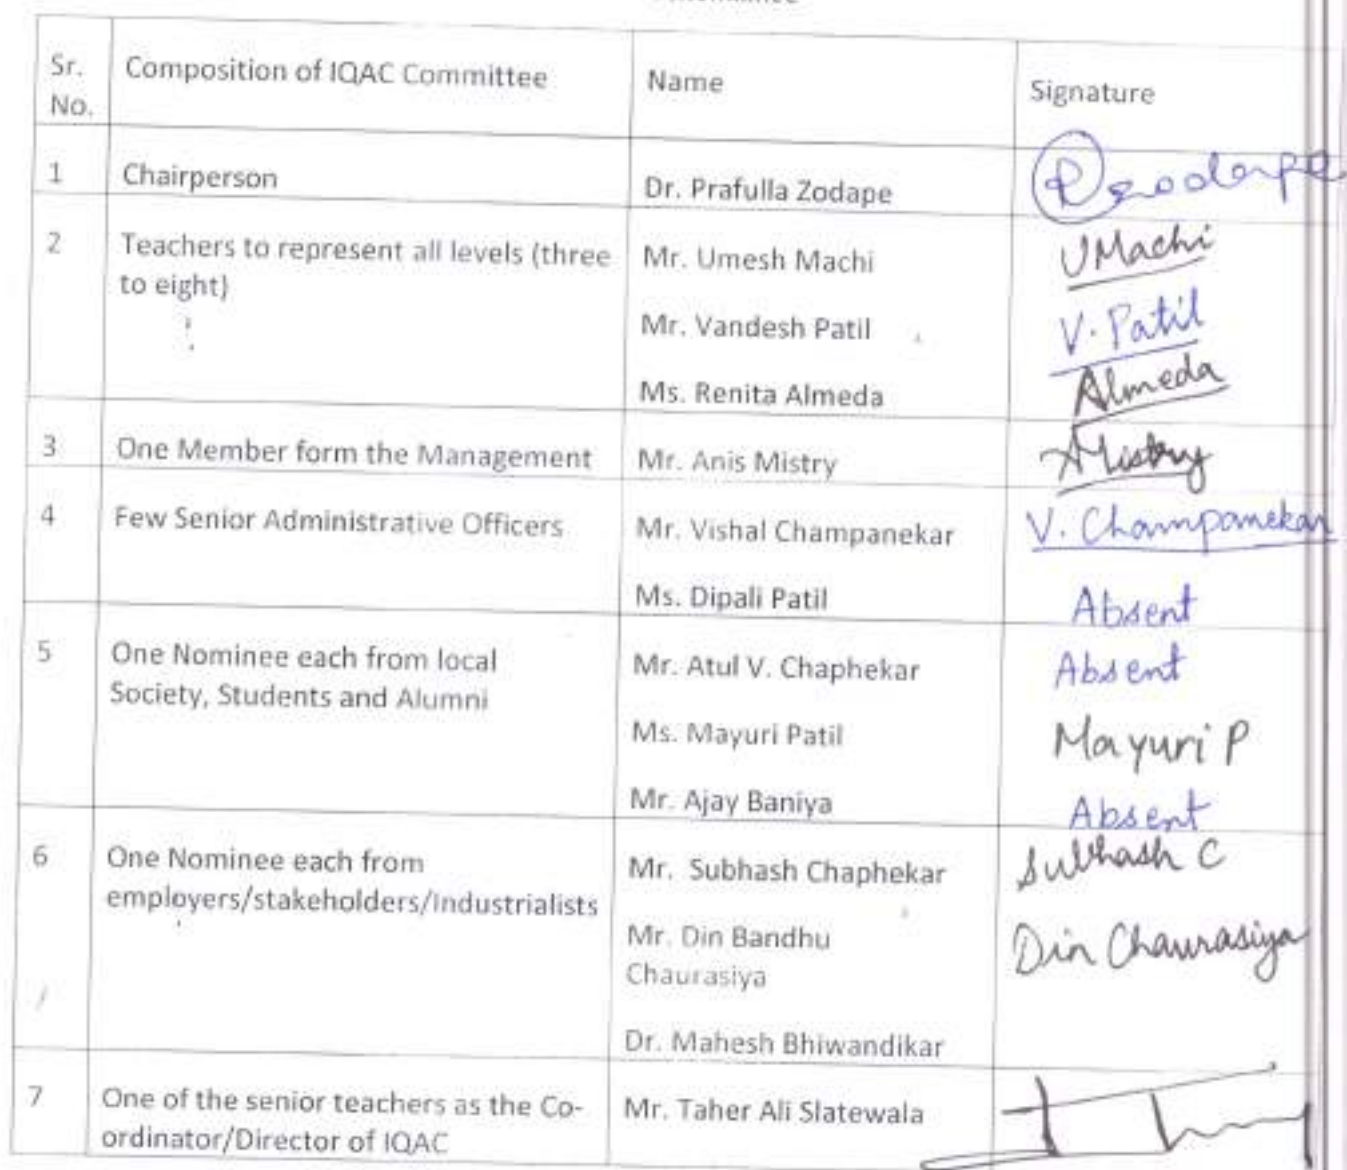 Sr. No.
Composition of IQAC Committee
Name
Signature
1
Chairperson
Dr. Prafulla Zodape
2
Teachers to represent all levels (three
to eight)
Mr. Umesh Machi
UMachi
Mr. Vandesh Patil
V. Patil
Ms. Renita Almeda
Almeda
3
One Member form the Management
Mr. Anis Mistry
AMistry
4
Few Senior Administrative Officers
Mr. Vishal Champanekar
V. Champanekar
Ms. Dipali Patil
Absent
5
One Nominee each from local
Society, Students and Alumni
Mr. Atul V. Chaphekar
Absent
Ms. Mayuri Patil
Mayuri P
Mr. Ajay Baniya
Absent
6
One Nominee each from
employers/stakeholders/Industrialists
Mr. Subhash Chaphekar
Subhash C
Mr. Din Bandhu
Chaurasiya
Din Chaurasiya
Dr. Mahesh Bhiwandikar
7
One of the senior teachers as the Co-
ordinator/Director of IQAC
Mr. Taher Ali Slatewala